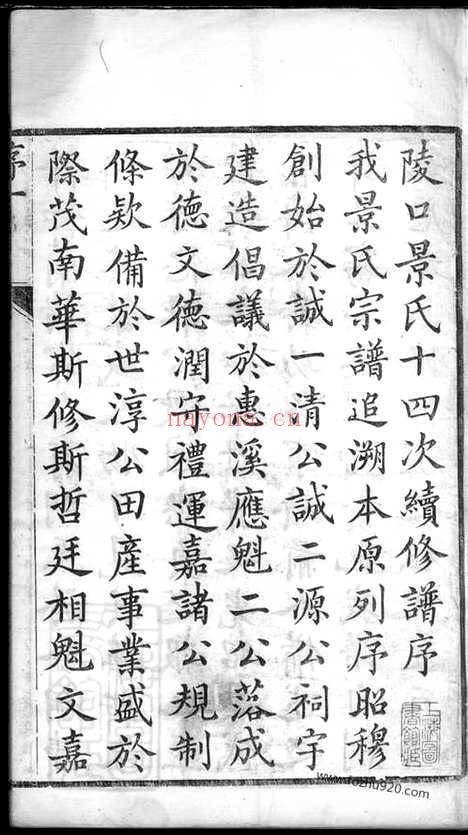 陵口景氏十四次續修譜序
我景氏宗譜追溯本原列序昭穆
創始於誠一清公誠二源公祠宇
建造倡議於惠溪應魁二公落成
於德文德潤守禮運嘉諸公規制
條欵備於世淳公田産事業盛於
際茂南華斯修斯哲廷相魁文嘉
序一
nayona.cn
www.fozhu920.com